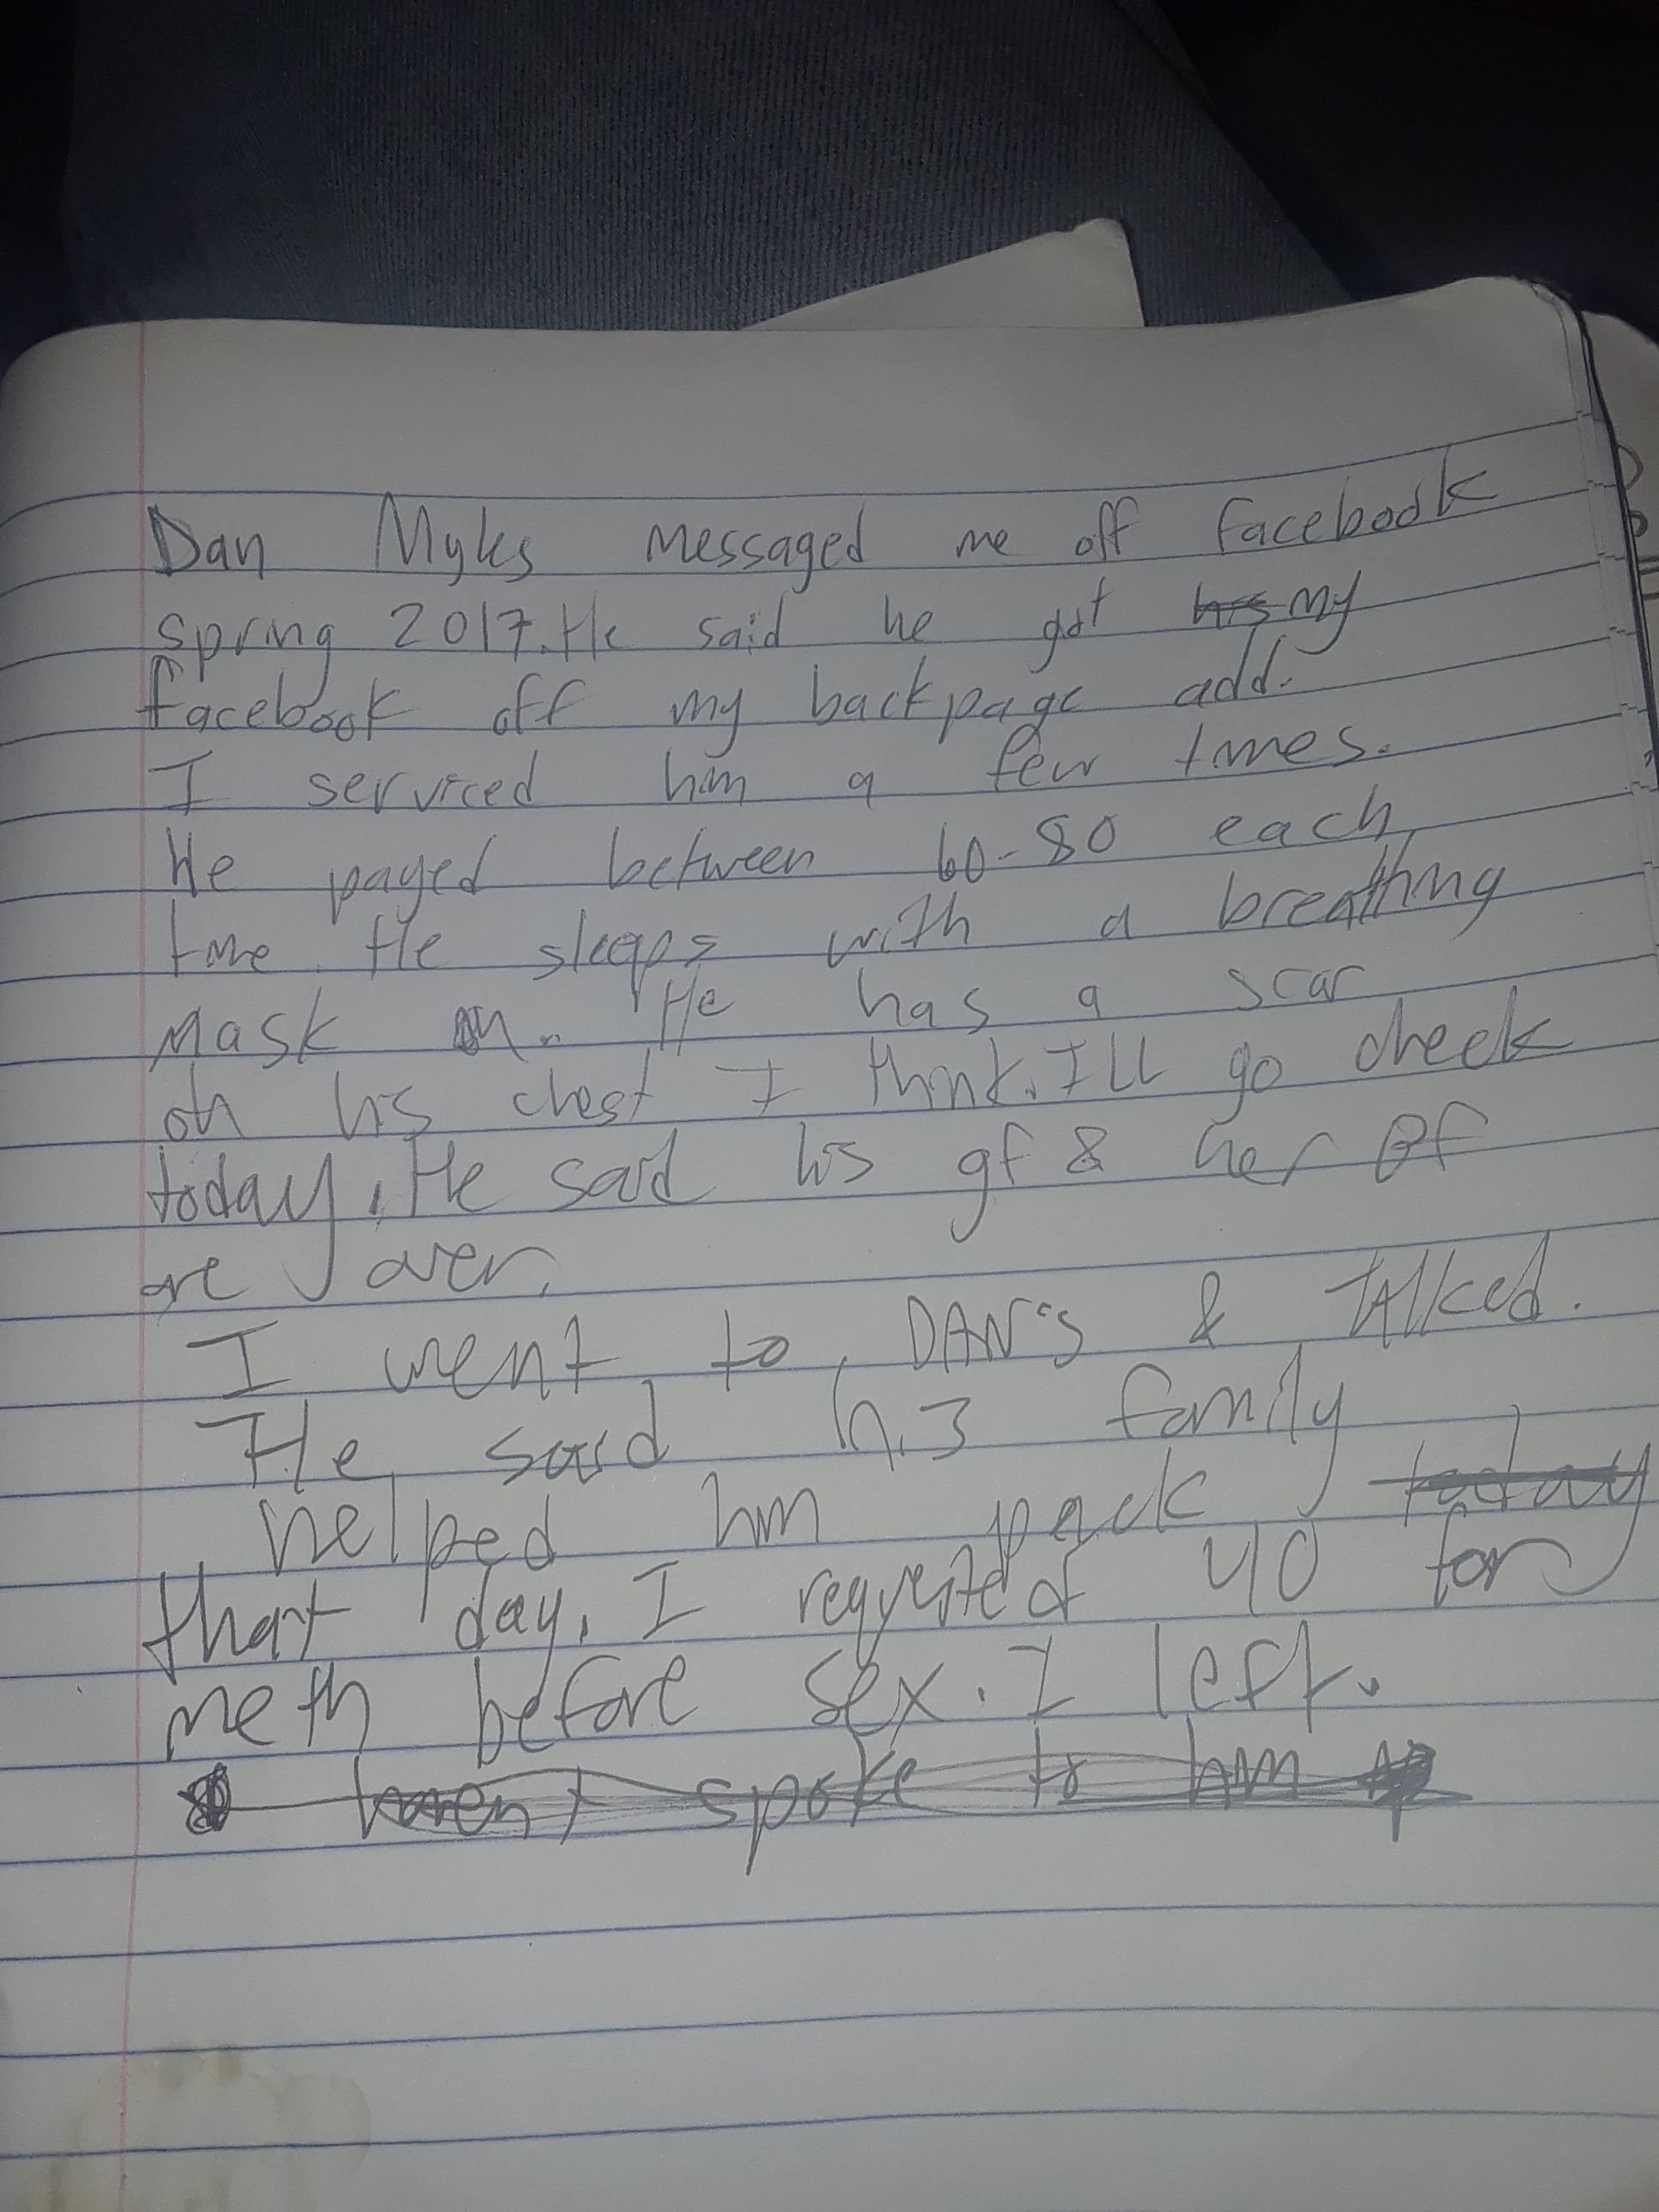 Dan Myks messaged me off facebook
spring 2017. He said he got his my
facebook off my backpage add.
I serviced him a few times.
He payed between 60-80 each
time. He sleeps with a breathing
mask on. He has a scar
on his chest I think. I'll go check
today. He said his gf & her Bf
are over.
I went to DAN's & TAlked.
He said his family
helped him pack today
that day. I requested 40 for
meth before sex. I left.
havent spoke to him